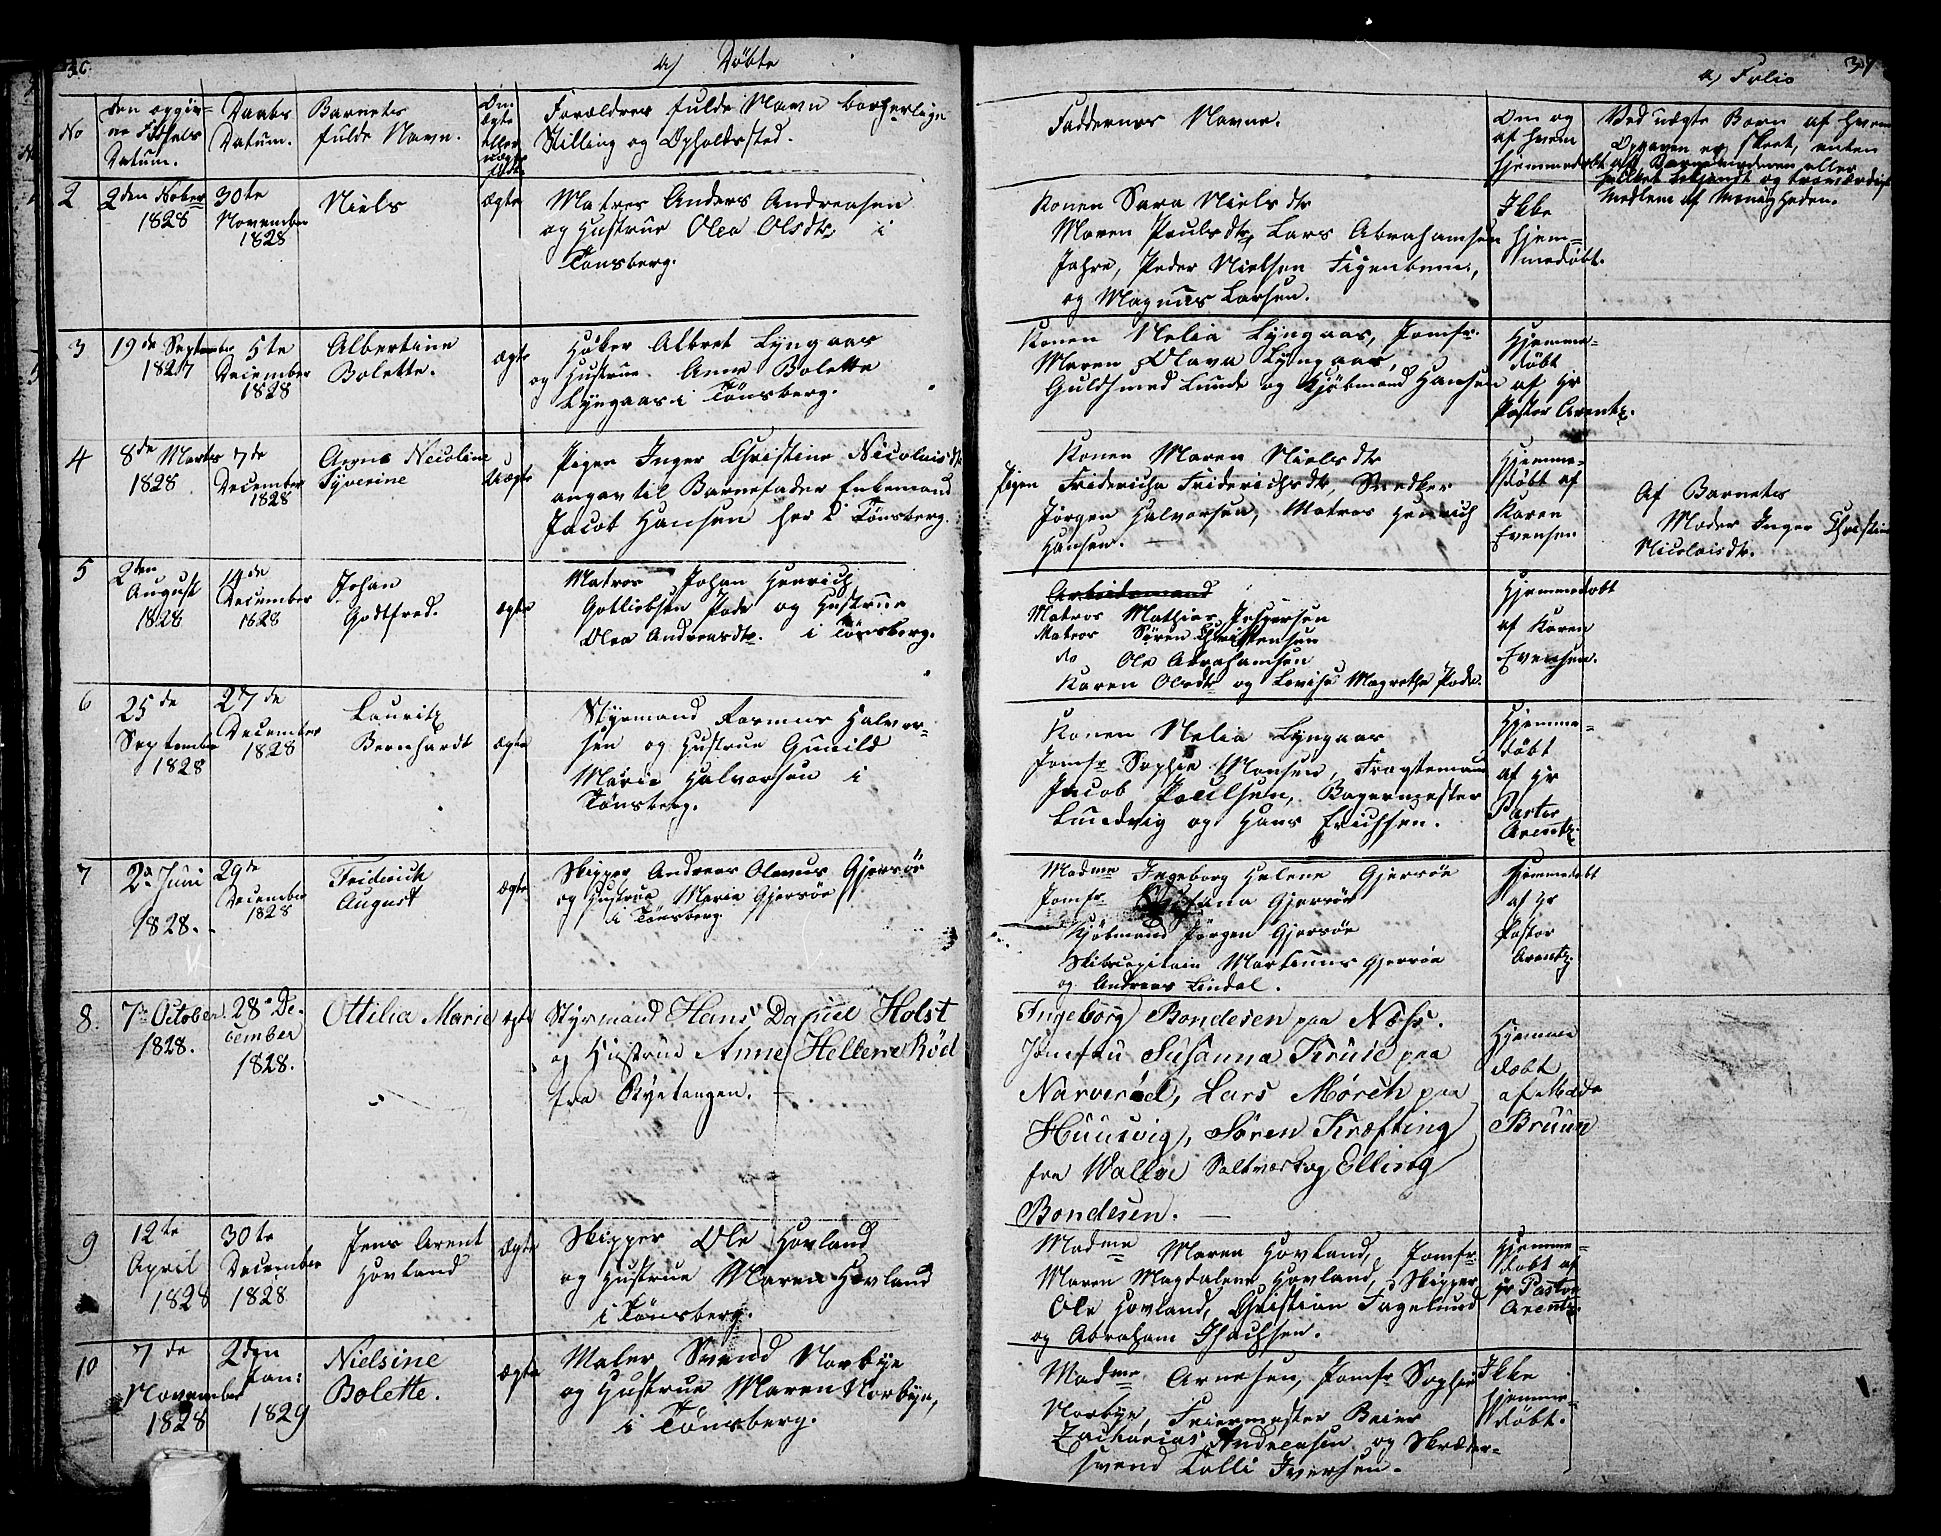 36.
a) Døbte
No
den opgiv-
ne Fødsels
Datum.
Daabs
Datum.
Barnets
fulde Navn.
Om
ægte
eller
uægte
født
Forældres fulde Navn borgerlige
Stilling og Opholdssted.
2
2den Nober
1828
30te
November
1828
Niels
ægte
Matros Anders Andreasen
og Hustrue Olea Olsdtr i
Tønsberg.
3
19de September
1827
5te
December
1828
Albertine
Bolette.
ægte
Høker Albret Lyngaas
og Hustrue Anne Bolette
Lyngaas i Tønsberg.
4
8de Marts
1828
7de
December
1828
Anne Nicoline
Syverine
Uægte
Pigen Inger Christine Nicolaisdtr
angav til Barnefader Enkemand
Jacob Hansen her i Tønsberg.
5
2den
August
1828
14de
December
1828
Johan
Godtfred.
ægte
Matros Johan Henrich
Gotliebsen Pode og Hustrue
Olea Andreasdtr. i Tønsberg.
6
25de
September
1828
27de
December
1828
Lauritz
Bernhardt
ægte
Styrmand Rasmus Halvor-
sen og Hustrue Gunild
Marie Halvorsen i
Tønsberg.
7
2a Juni
1828.
29de
December
1828
Friderich
August
ægte
Skipper Andreas Olaus Gjersøe
og Hustrue Marie Gjersøe
i Tønsberg
8.
7de October
1828.
28de De-
cember
1828.
Ottilia Marie
egte
Styrmand Hans Daniel Holst
og Hustrue Anne Hellene Rød
fra Ryetangen.
9
12te
April
1828
30te
December
1828
Jens Arent
Hovland
ægte
Skipper Ole Hovland
og Hustrue Maren Hovland
i Tønsberg.
10
7de
November
1828
2den
Jan:
1829
Nielsine
Bolette.
ægte
Maler Svend Norbye
og Hustrue Maren Norbye,
i Tønsberg.
a) Folio
37
Faddernes Navne.
Om og
af hvem
hjemmedøbt
Ved uægte Børn af hvem
Opgaven er skeet, enten
af Barnemoderen eller
hvilket bekjendt og troværdigt
Medlem af Menigheden.
Konen Sara Nielsdtr
Maren Poulsdtr, Lars Abrahamsen
Jahre, Peder Nielsen Figenbaum,
og Magnus Larsen.
Ikke
hjem-
medøbt.
Konen Nelia Lyngaas, Jomfr.
Maren Olava Lyngaas,
Guldsmed Lunde og Kjøbmand Hansen
Hjemme-
døbt
af Hr
Pastor Arentz.
Konen Maren Nielsdtr
Pigen Fridericha Friderichsdtr, Snedker
Jørgen Halvorsen, Matros Henrich
Hansen.
Hjemme-
døbt af
Karen
Evensen
Af Barnets
Moder Inger Christine
Nicolaisdtr.
Arbeidsmand
Matros Mathias Jespersen
Matros Søren Christensen
do Ole Abrahamsen
Karen Olsdtr og Lovise Magrethe Pode.
Hjemmedøbt
af Karen
Evensen.
Konen Nelia Lyngaas
Jomfr Sophie Monsen, Fragtemand
Jacob Poulsen, Bagermester
Lundvig og Hans Erichsen.
Hjemme-
døbt
af Hr
Pastor
Arentz.
Madme Ingeborg Helene Gjersøe
Jomfr Gjersøe
Kjøbmand Jørgen Gjersøe
Skibscapitain Martinus Gjersøe
og Andreas Lindal.
Hjemmedøbt
af Hr
Pastor
Arentz
Ingeborg Bondesen paa Næss.
Jomfru Susanna Kruse paa
Narverød, Lars Mørch paa
Huusvig, Søren Kræfting
fra Walløe Saltværk og Elling
Bondesen.
Hjemme
døbt
af Mad.
Bruun
Madme Maren Hovland, Jomfr
Maren Magdalene Hovland, Skipper
Ole Hovland, Christian Fagelund
og Abraham Isachsen.
Hjemme-
døbt af
Hr Pastor
Arentz.
Madme Arnesen, Jomfr Sophie
Norbye, Feiermester Beier
Zacharias Andreasen og Skræder-
svend Tolli Iversen.
Ikke
hjemme-
døbt.